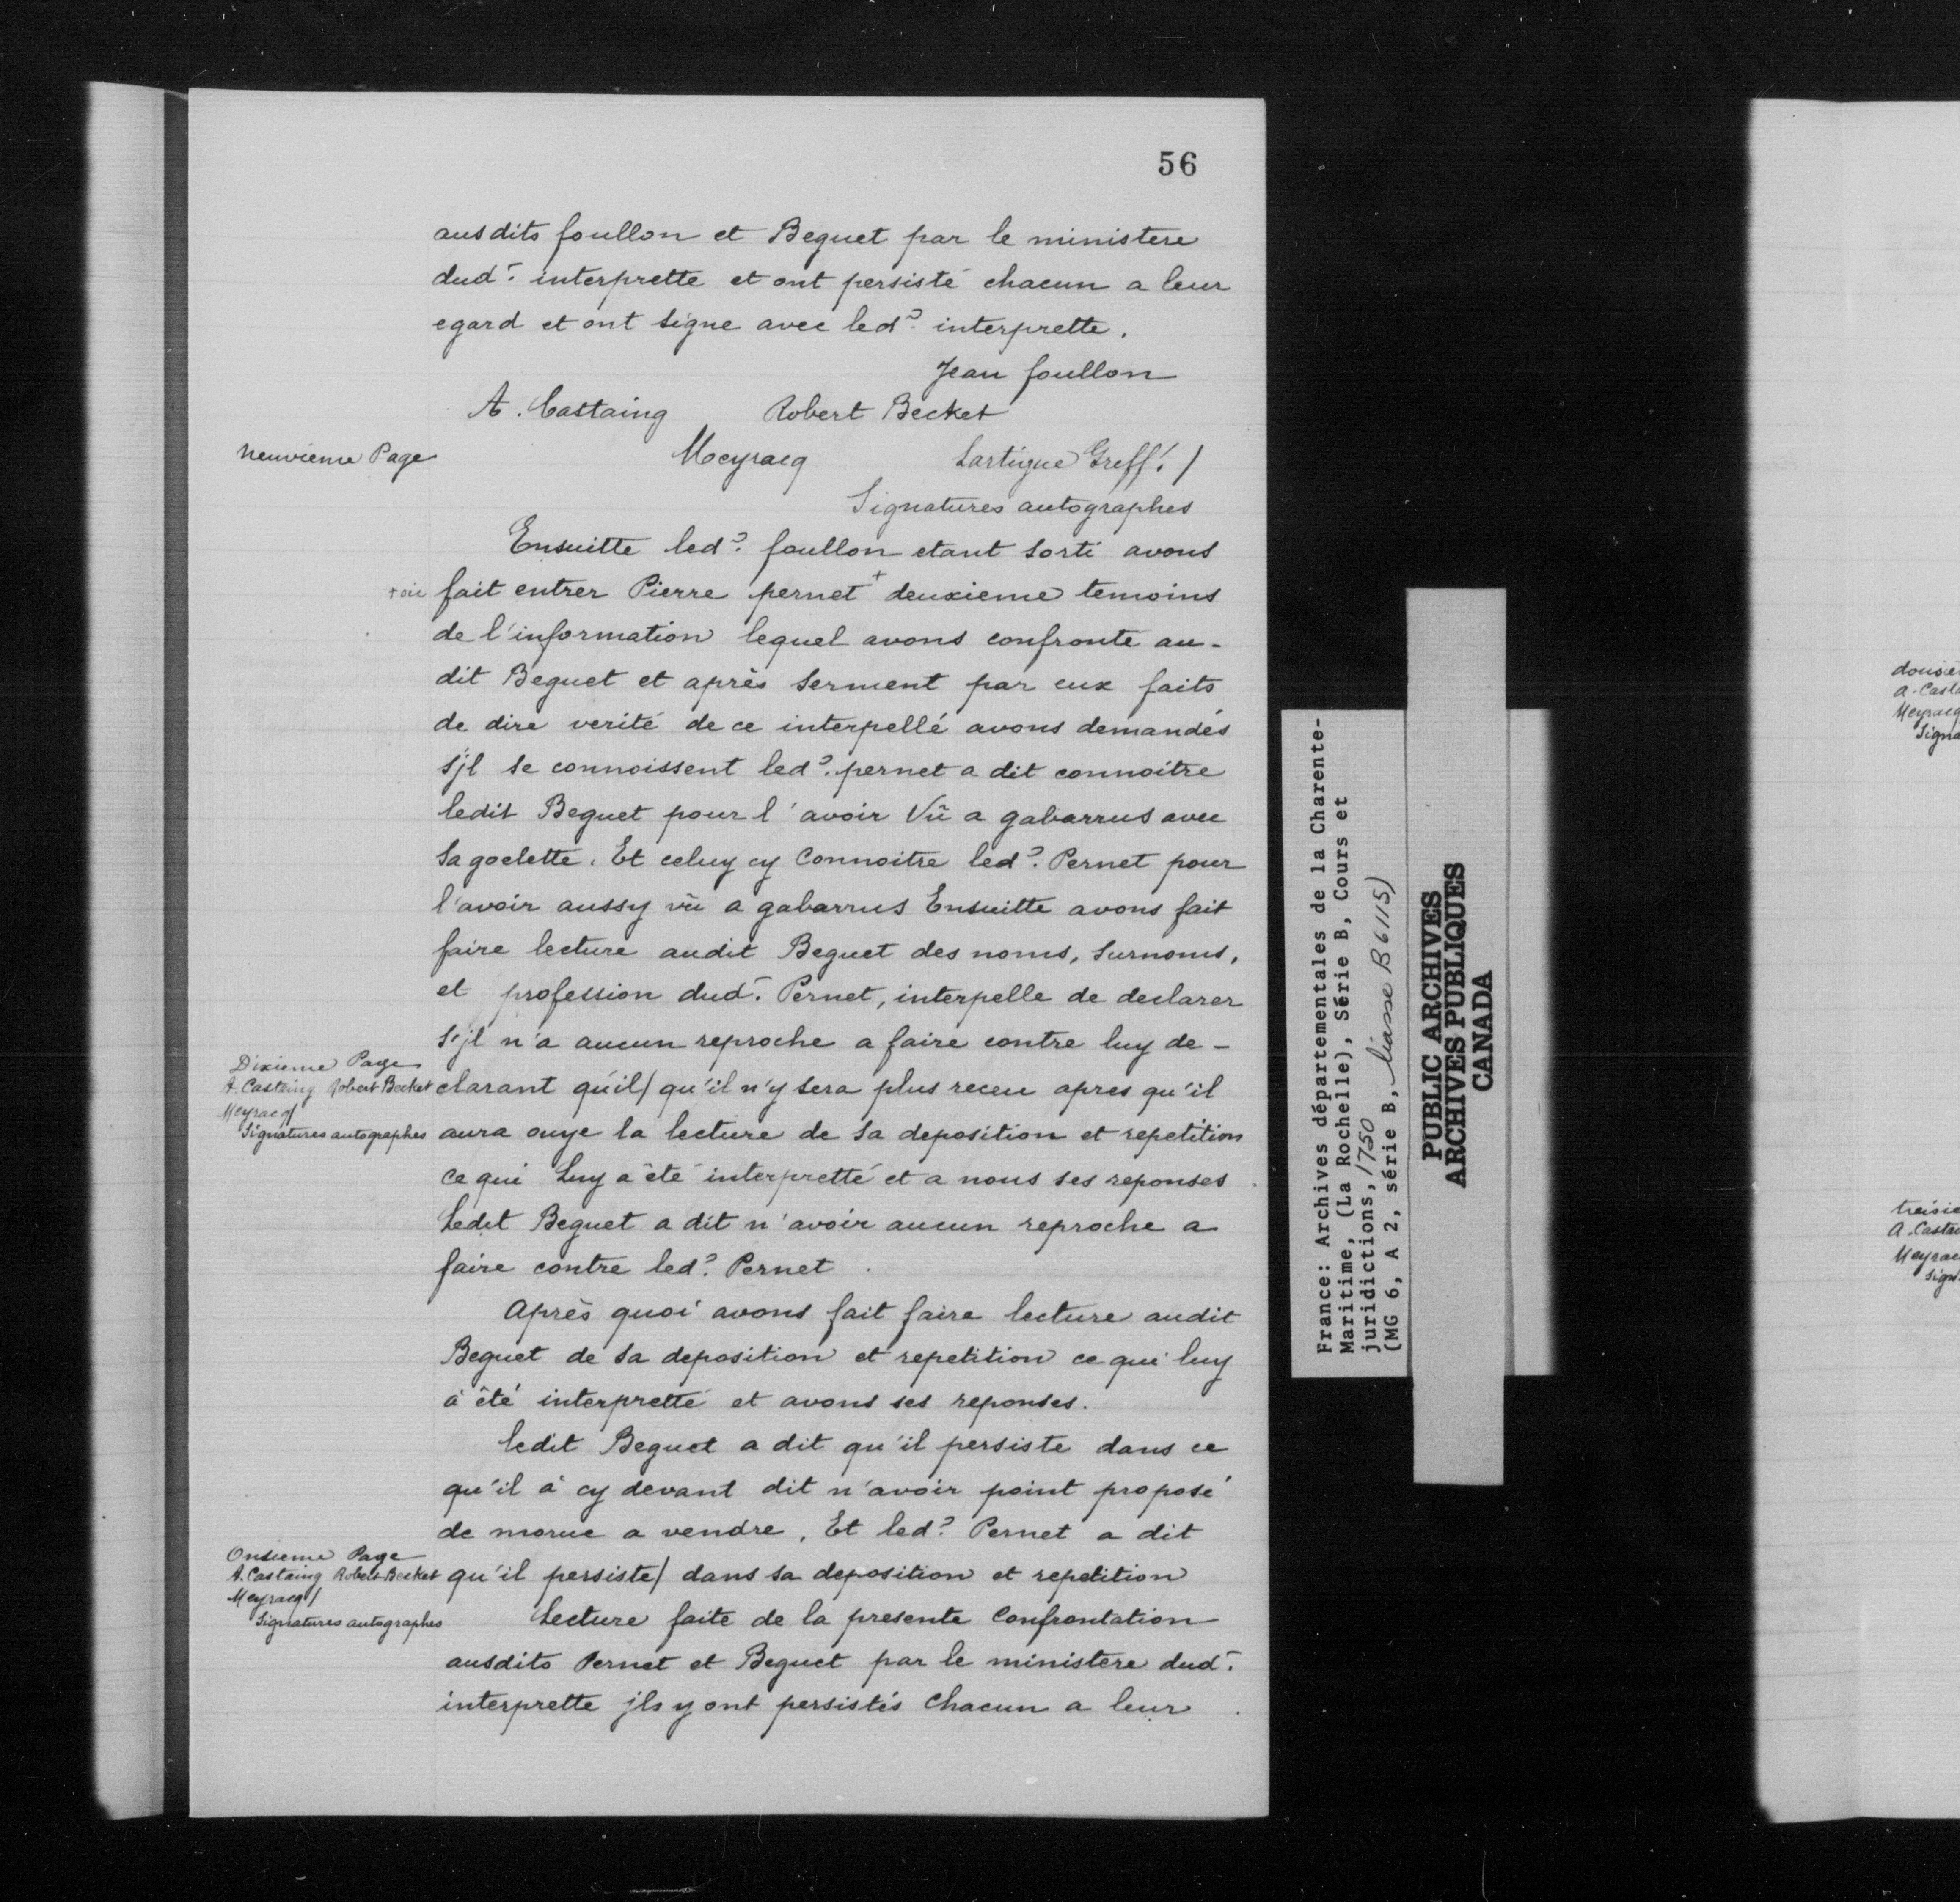 56
ausdits foullon et Beguet par le ministere
dud.t interprette et ont persisté chacun a leur
egard et ont signe avec led.t interprette.
Jean foullon
A. Castaing Robert Becket
neuvieme Page
Meyracq Lartigue Greff. /
Signatures autographes
Ensuitte led.t foullon etant sorti avons
fait entrer Pierre pernet + deuxieme temoins
de l'information lequel avons confronté au-
dit Beguet et après serment par eux faits
de dire verité de ce interpellé avons demandés
s'jl se connoissent led.t pernet a dit connoitre
ledit Beguet pour l'avoir Vû a gabarrus avec
sa goelette. Et celuy cy Connoitre led.t Pernet pour
l'avoir aussy vû a gabarrus Ensuitte avons fait
faire lecture audit Beguet des noms, surnoms,
et profession dud.t Pernet, interpelle de declarer
s'jl n'a aucun reproche a faire contre luy de-
Dixieme Page
A. Castaing Robert Becket
Meyracq/
Signatures autographes
clarant qu'il/ qu'il n'y sera plus receu apres qu'il
aura ouye la lecture de sa deposition et repetition
ce qui Luy a êté interpretté et a nous ses reponses
Ledit Beguet a dit n'avoir aucun reproche a
faire contre led.t Pernet.
Après quoi avons fait faire lecture audit
Beguet de sa deposition et repetition ce qui luy
à êté interpretté et avons ses reponses.
ledit Beguet a dit qu'il persiste dans ce
qu'il à cy devant dit n'avoir point proposé
de morue a vendre. Et led.t Pernet a dit
Onsieme Page
A. Castaing Robert Becket
Meyracq/
Signatures autographes
qu'il persiste/ dans sa deposition et repetition
Lecture faite de la presente Confrontation
ausdits Pernet et Beguet par le ministère dud.t
interprette jls y ont persistés Chacun a leur
France: Archives départementales de la Charente-
Maritime, (La Rochelle), Série B, Cours et
juridictions, 1750
(MG 6, A 2, série B, liasse B 6115)
PUBLIC ARCHIVES
ARCHIVES PUBLIQUES
CANADA